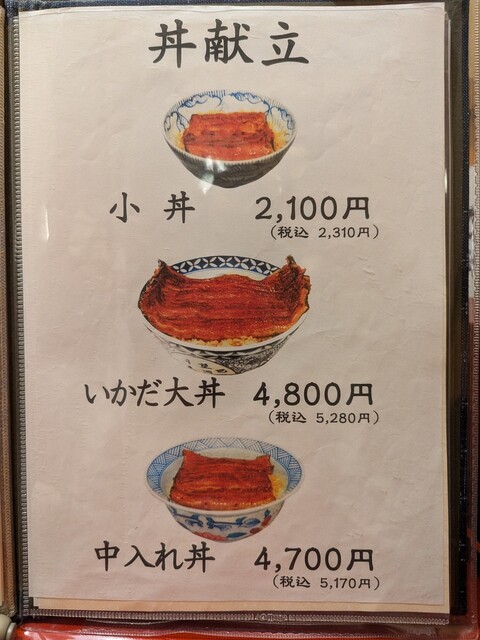 丼献立
小丼 2,100円
(税込 2,310円)
いかだ大丼 4,800円
(税込 5,280円)
中入れ丼 4,700円
(税込 5,170円)